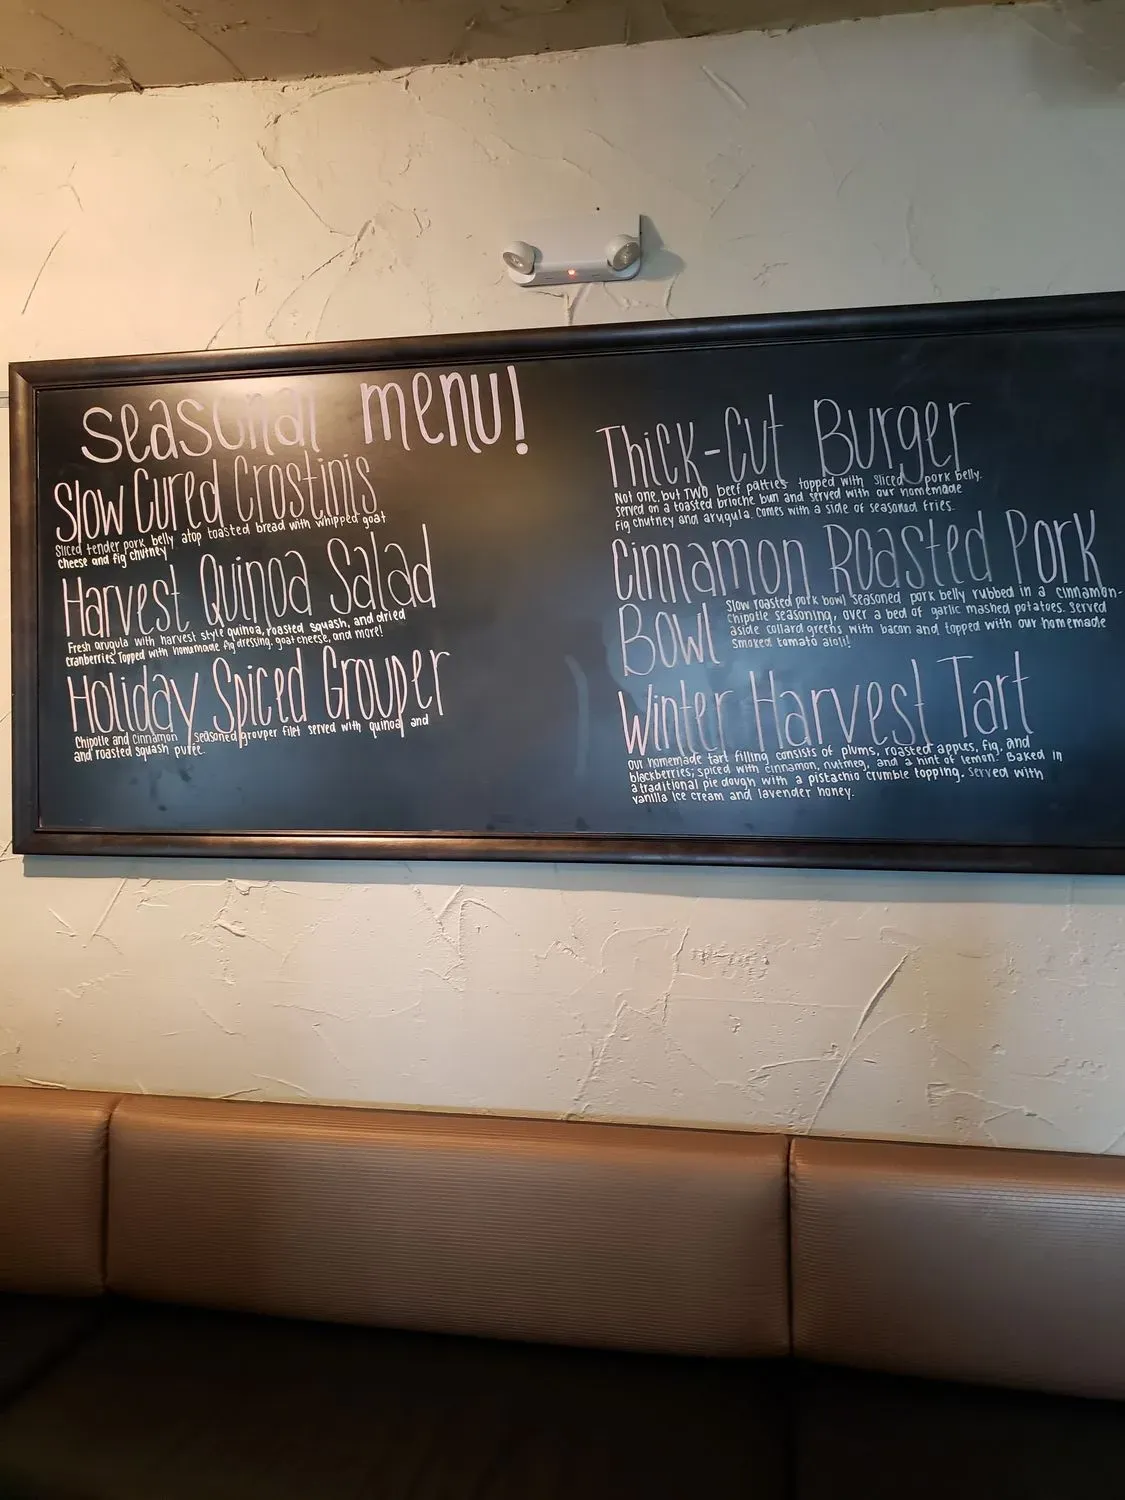 seasonal menu!
Slow Cured Crostinis
Sliced tender pork belly atop toasted bread with whipped goat
cheese and fig chutney
Harvest Quinoa Salad
Fresh arugula with harvest style quinoa, roasted squash, and dried
cranberries. Topped with homemade fig dressing, goat cheese, and more!
Holiday Spiced Grouper
Chipotle and cinnamon seasoned grouper filet served with quinoa and
and roasted squash purée.
Thick-Cut Burger
Not one, but TWO beef patties topped with sliced pork belly.
Served on a toasted brioche bun and served with our homemade
fig chutney and arugula. Comes with a side of seasoned fries.
Cinnamon Roasted Pork
Bowl
Slow roasted pork bowl. Seasoned pork belly rubbed in a cinnamon-
chipotle seasoning, over a bed of garlic mashed potatoes. Served
aside collard greens with bacon and topped with our homemade
smoked tomato aioli!
Winter Harvest Tart
Our homemade tart filling consists of plums, roasted apples, fig, and
blackberries; spiced with cinnamon, nutmeg, and a hint of lemon. Baked in
a traditional pie dough with a pistachio crumble topping. Served with
vanilla ice cream and lavender honey.